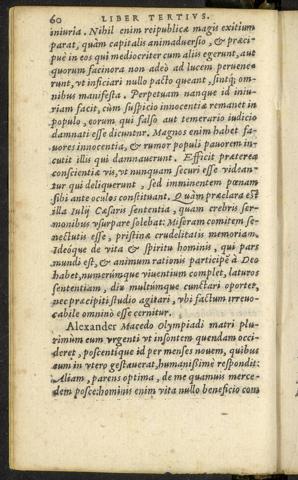 60 LIBER TERTIVS.
iniuria. Nihil enim reipublicæ magis exitium
parat, quàm capitalis animaduersio, & præci-
puè in eos qui mediocriter cum alijs egerunt, aut
quorum facinora non adeò ad lucem peruene
runt, vt inficiari nullo pacto queant, sintq; om-
nibus manifesta. Perpetuam nanque id iniu-
riam facit, cùm suspicio innocentiæ remanet in
populo, eorum qui falso aut temerario iudicio
damnati esse dicuntur. Magnos enim habet fa-
uores innocentia, & rumor populi pauorem in-
cutit illis qui damnauerunt. Efficit præterea
conscientiæ vis, vt nunquam securi esse videan-
tur qui deliquerunt, sed imminentem pœnam
sibi ante oculos constituant. Quàm præclara est
illa Iulij Cæsaris sententia, quam crebris ser-
monibus vsurpare solebat: Miseram comitem se-
nectutis esse, pristinæ crudelitatis memoriam.
Ideóque de vita & spiritu hominis, qui pars
mundi est, & animum rationis participẽ à Deo
habet, numerúmque viuentium complet, laturos
sententiam, diu multúmque cunctari oportet,
nec præcipiti studio agitari, vbi factum irreuo-
cabile omninò esse cernitur.
Alexander Macedo Olympiadi matri plu-
rimùm eum vrgenti vt insontem quendam occi-
deret, poscentique id per menses nouem, quibus
eum in vtero gestauerat, humanißimè respondit:
Aliam, parens optima, de me quamuis merce-
dem posce: hominis enim vita nullo beneficio com